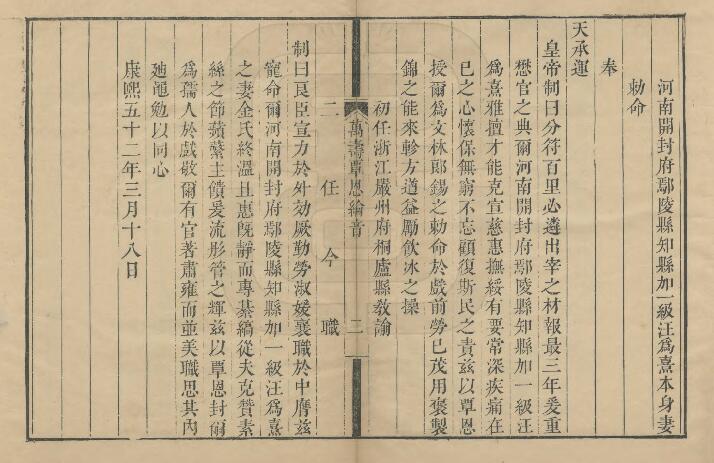 河南開封府鄢陵縣知縣加一級汪爲熹本身妻
勅命
奉
天承運
皇帝制曰分符百里必遴出宰之材報最三年爰重
懋官之典爾河南開封府鄢陵縣知縣加一級汪
爲熹雅擅才能克宣慈惠撫綏有要常深疾痛在
已之心懷保無窮不忘顧復斯民之責兹以覃恩
授爾爲文林郎錫之勅命於戱前勞已茂用褒製
錦之能來軫方遒益勵飲冰之操
初任浙江嚴州府桐廬縣敎諭
萬壽覃恩綸音
二
二任今職
制曰良臣宣力於外効厥勤勞淑媛襄職於中膺兹
寵命爾河南開封府鄢陵縣知縣加一級汪爲熹
之妻金氏終溫且惠旣靜而專綦縞從夫克贊素
絲之節蘋蘩主饋爰流彤管之輝兹以覃恩封爾
爲孺人於戱敬爾有官著肅雍而並美職思其內
迪黽勉以同心
康熙五十二年三月十八日